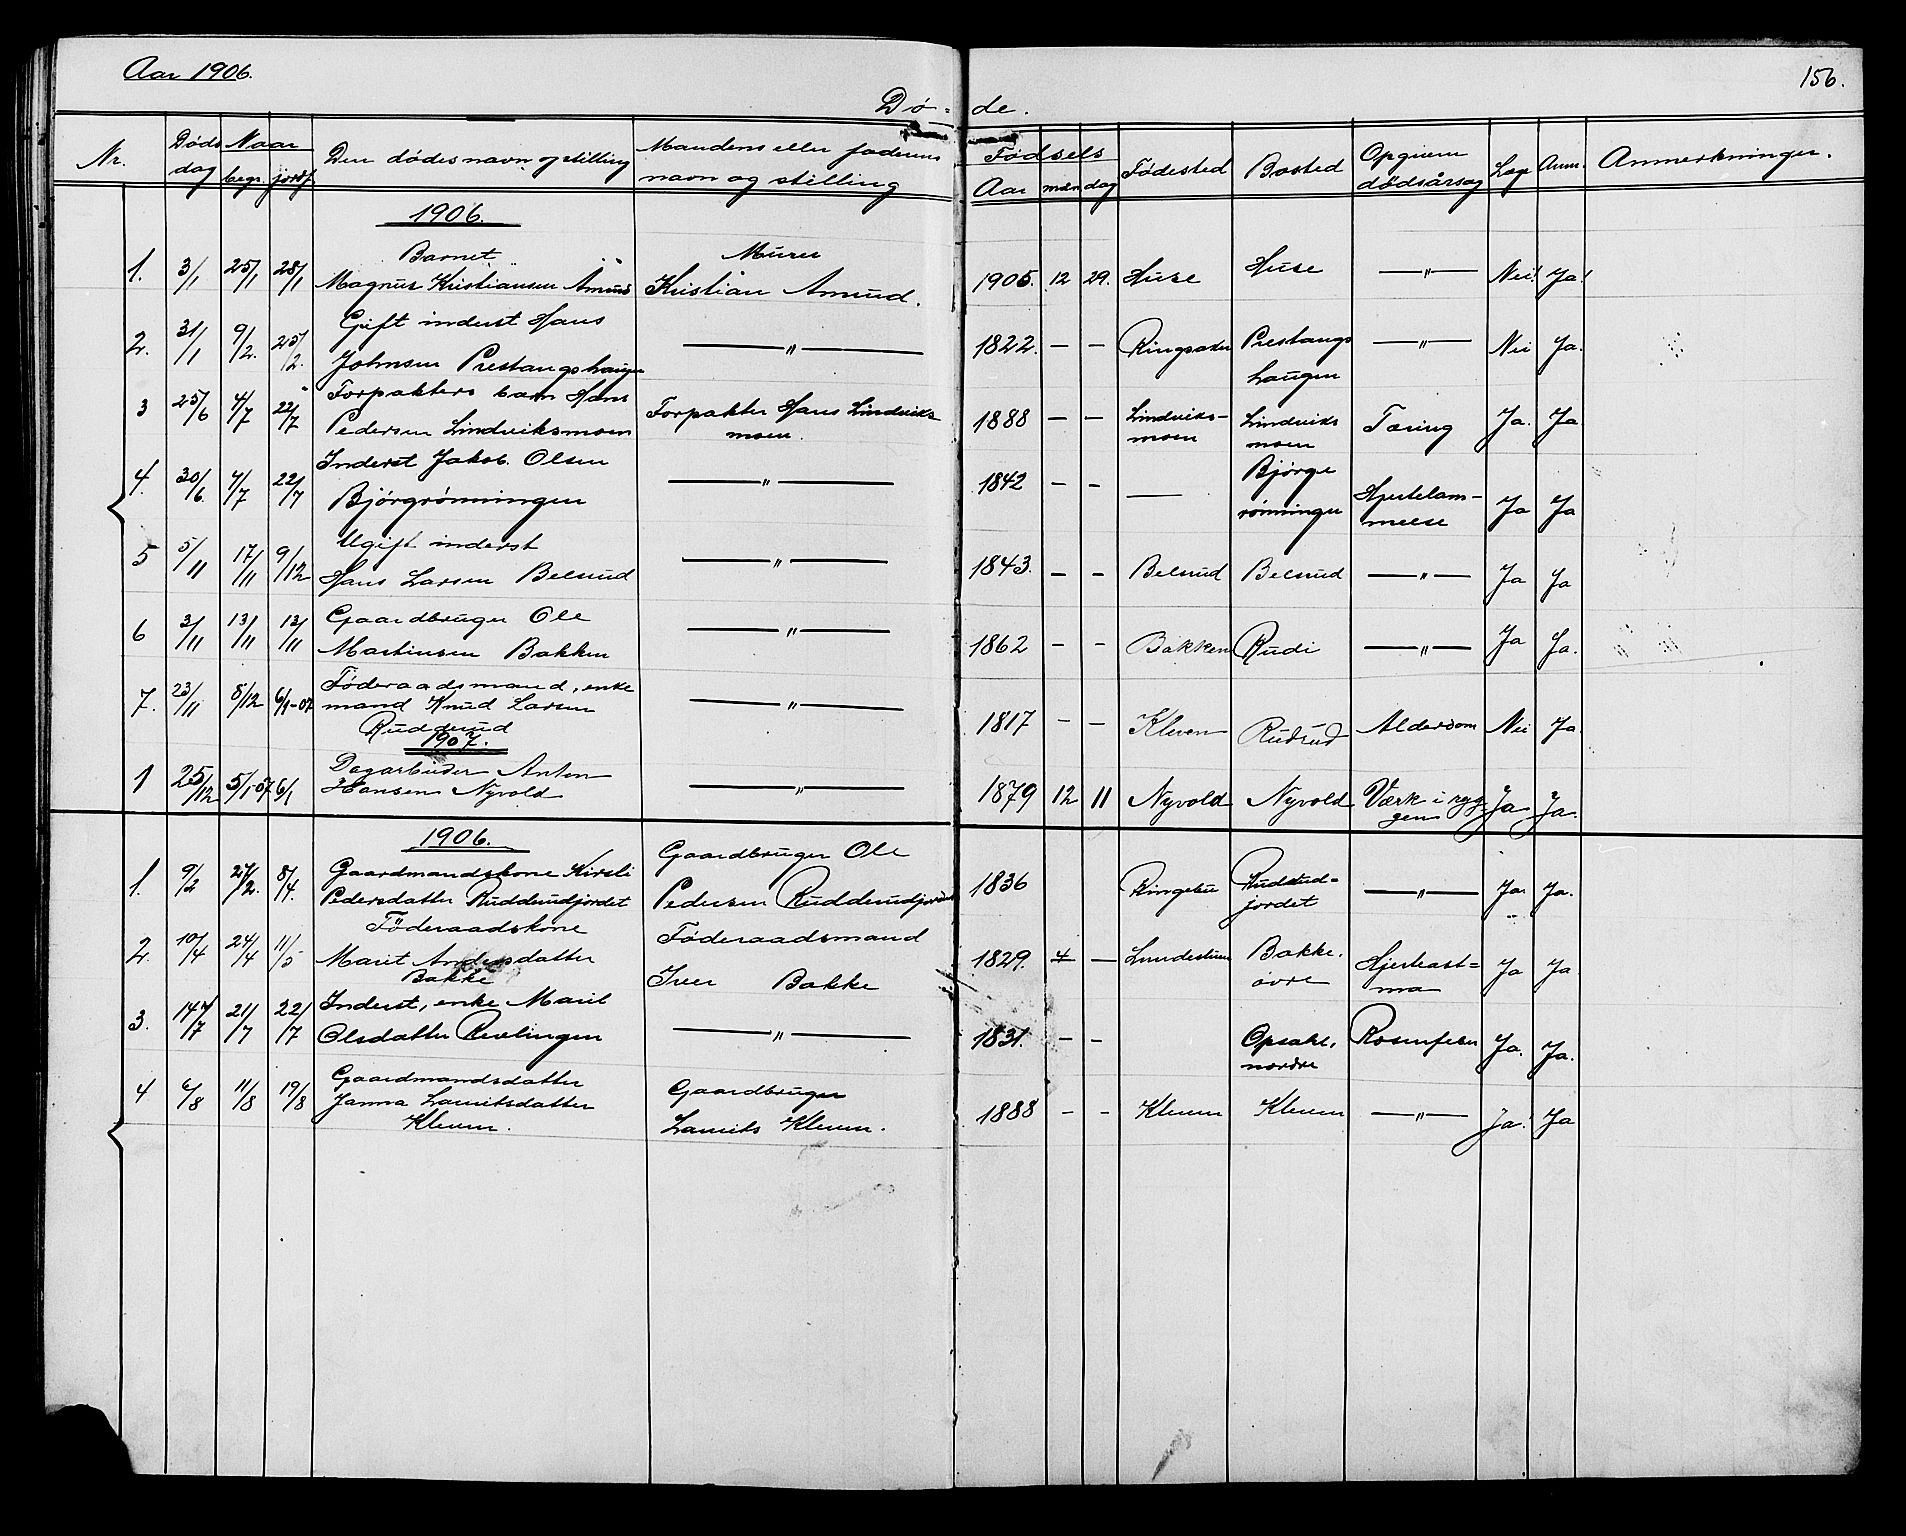 Aar 1906.
156.
Dø-de.
Nr. Døds dag Naar begr. jordf. Den dødes navn og stilling Mandens eller faderens navn og stilling Fødsels Aar mæn dag Fødested Bosted Opgiven dødsårsag Læg. Anm. Anmerkninger.
1906.
Barnet Murer
1. 3/1 25/1 28/1 Magnus Kristiansen Amund Kristian Amund. 1905. 12 29. Huse Huse —"— Nei! Ja!
Gift inderst Hans
2. 31/1 9/2. 25/2. Johnsen Prestangshaugen —"— 1822. — — Ringsaker Prestangs haugen —"— Nei Ja.
Forpakters barn Hans
3 25/6 4/7 22/7 Pedersen Lindviksmoen Forpakter Hans Lindviks moen. 1888 — — Lindviks-moen Lindviks moen Tæring Ja. Ja
Inderst Jakob Olsen
4. 30/6. 4/7 22/7 Bjørgrønningen —"— 1842 — — — Bjørge rønningen Hjertelam-melse Ja Ja
Ugift inderst
5 5/11 17/11 9/12 Hans Larsen Belsrud —"— 1843. — — Belsrud Belsrud —"— Ja Ja
Gaardbruger Ole
6 3/11 13/11 13/11 Martinsen Bakken —"— 1862 — — Bakken Rudi —"— Ja Ja.
Føderaadsmand, enke
7. 23/11 5/12 6/1-07 mand Knud Larsen —"— 1817 — — Kleven Rudsud Alderdom Nei Ja
Ruddsrud
1907.
Dagarbeider Anton
1 25/12 5/1-07 6/1 Hansen Nyvold —"— 1879 12 11 Nyvold Nyvold Værk i ryg gen Ja Ja.
1906.
Gaardmandskone Kirsti Gaardbruger Ole
1. 9/2 27/2. 8/4. Pedersdatter Rudderudjordet Pedersen Rudderudjordet 1836 Ringebu Rudsrud=jordet —"— Ja Ja.
Føderaadskone Føderaadsmand
2. 10/4 24/4 11/5 Marit Andersdatter Iver Bakke 1829. 4 — Bakke, øvre Hjerteast=ma Ja Ja
Bakke
Inderst, enke Marit
3. 14/7 21/7 22/7 Olsdatter Revlingen —"— 1831. — — Opsahl, nordre Rosenfeber Ja. Ja.
Gaardmandsdatter Gaardbruger
4 6/8 11/8 19/8 Janna Lauritsdatter Laurits Kleven. 1888 — — Kleven Kleven —"— Ja! Ja
Kleven.